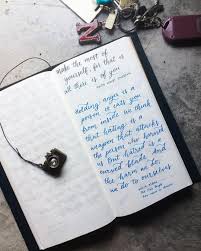 Make the most of
yourself, for that is
all there is of you
Holding anger is a
poison. It eats you
from inside. We think
that hating is a
weapon that attacks
the person who harmed
us. But hatred is a
curved blade. And
the harm we do,
we do to ourselves.